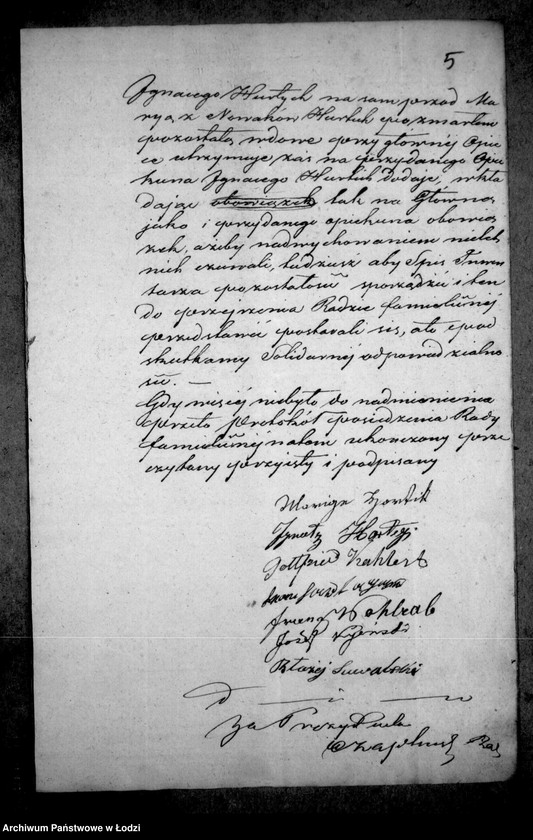 5
Ignacego Hurtych na sam przod Ma
rya z Nowaków Hurtich po zmarłem
pozostałą wdowę przy głównej Opie
ce utrzymuje zaś na przydanego Opie
kuna Ignacego Hurtich dodaje, wkła
dając obowiązek tak na Główną
jako i przydanego opiekuna obowią
zek, ażeby nad wychowaniem nielet
nich czuwali, tudzież aby Spis Inwen
tarza pozostałości sporządzili i ten
do przejrzenia Radzie familijnej
przedstawić postarali się, a to pod
skutkamy Solidarnej odpowiedzialno
ści. —
Gdy więcej niebyło do nadmienienia
przeto Protokół posiedzenia Rady
familijnej natem ukończony prze
czytany przyjęty i podpisany
Ignatz
Gottfried Kahlert
Franz Wohlrab
Józef
Błażej Suwalski
d — i —
Za Prezydenta
Rad
Archiwum Państwowe w Łodzi